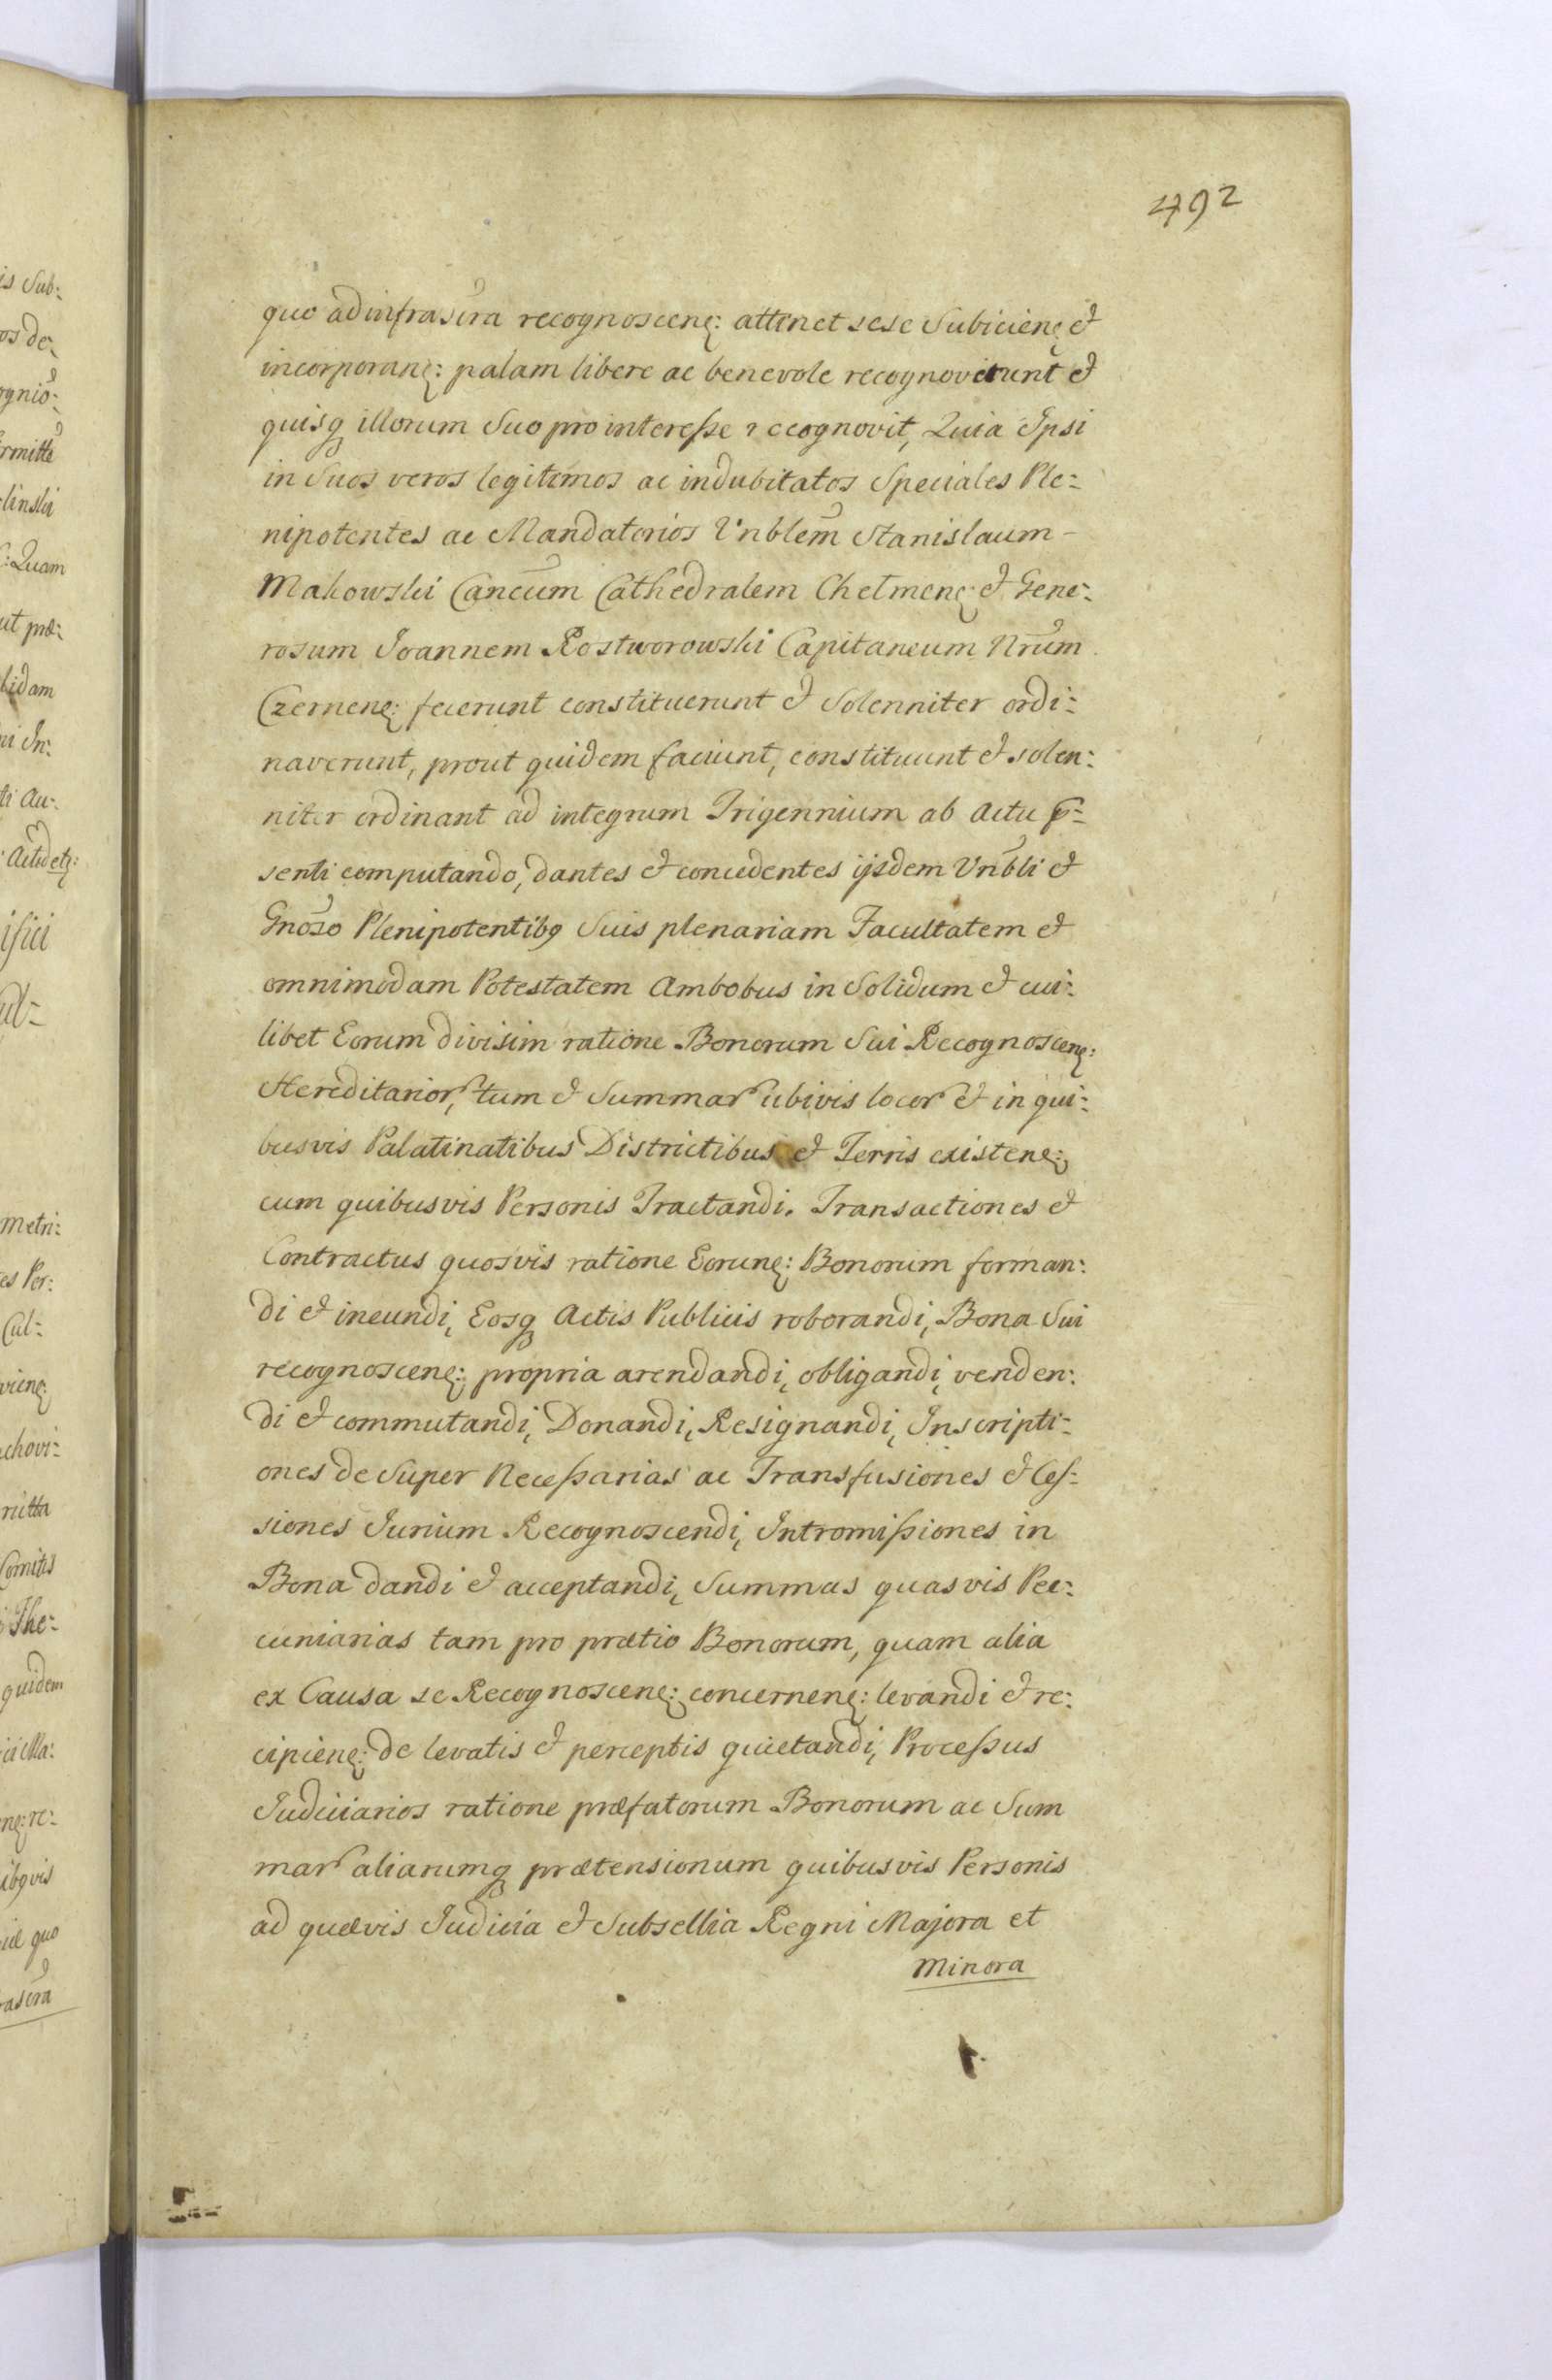 492
quo ad infrascra recognoscenę: attinet sese Subicienę et
incorporanę: palam libere ac benevole recognoverunt et
quisq illorum Suo pro interesse recognovit, Quia Ipsi
in Suos veros legitimos ac indubitatos Speciales Ple-
nipotentes ac Mandatorios Vnblem Stanislaum -
Makowski Cancum Cathedralem Chelmenę et Gene-
rosum Joannem Rostworowski Capitaneum Nrum
Czernenę: fecerunt constituerunt et Solenniter ordi-
naverunt, prout quidem faciunt, constituunt et solen-
niter ordinant ad integrum Trigennium ab Actu p-
senti computando, dantes et concedentes ijsdem Vnbli et
Gnoso Plenipotentibq Suis plenariam Facultatem et
omnimodam Potestatem Ambobus in Solidum et cui-
libet Eorum divisim ratione Bonorum Sui Recognoscenę:
Hereditarior, tum et Summar ubivis locor et in qui-
busvis Palatinatibus Districtibus et Terris existenę:
cum quibusvis Personis Tractandi. Transactiones et
Contractus quosvis ratione Eorunę: Bonorum forman-
di et ineundi, Eosq Actis Publicis roborandi, Bona Sui
recognoscenę: propria arendandi, obligandi, venden-
di et commutandi, Donandi, Resignandi, Inscripti-
ones de Super Necessarias ac Transfusiones et Ces-
siones Jurium Recognoscendi, Intromissiones in
Bona dandi et acceptandi, Summas quasvis Pec-
cuniarias tam pro prætio Bonorum, quam alia
ex Causa se Recognoscenę: concernenę: levandi et re-
cipienę: de levatis et perceptis quietandi, Processus
Judiciarios ratione præfatorum Bonorum ac Sum
mar aliarumq prætensionum quibusvis Personis
ad quævis Judicia et Subsellia Regni Majora et
Minora